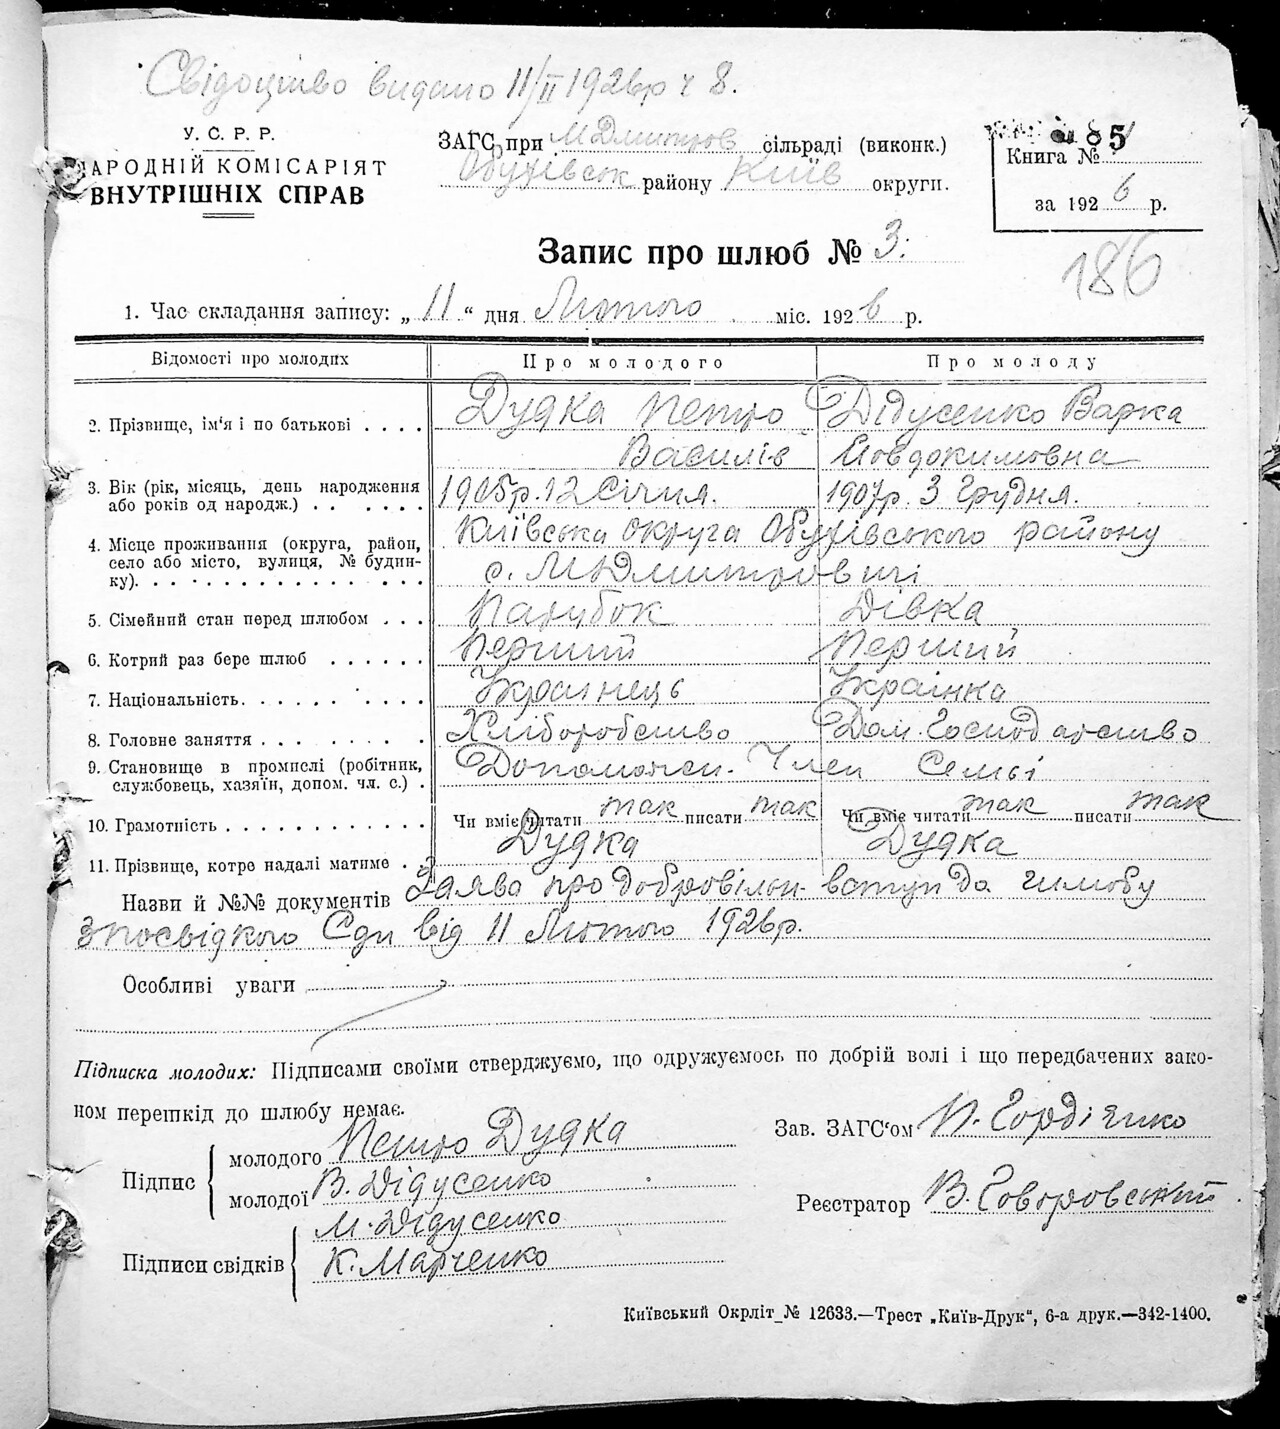 Свідоцтво видано 11/II 1926р ч 8.
У. С. Р. Р.
НАРОДНІЙ КОМІСАРІЯТ
ВНУТРІШНІХ СПРАВ
ЗАГС при М Дмитров сільраді (виконк.)
Обухівськ району Київ округи.
85
Книга №
за 1926 р.
Запис про шлюб № 3.
186
1. Час складання запису: „11“ дня Лютого міс. 1926 р.
Відомості про молодих Про молодого Про молоду
2. Прізвище, ім'я і по батькові . . . . Дудка Петро Дідусенко Варка
Василів Йовдокимовна
3. Вік (рік, місяць, день народження 1905р. 12 Січня. 1907р. 3 Грудня.
або років од народж.) . . . . . .
Київська округа Обухівського району
4. Місце проживання (округа, район,
село або місто, вулиця, № будин- с. М Дмитровичі
ку). . . . . . . . . . . . . . . .
5. Сімейний стан перед шлюбом . . . Парубок Дівка
6. Котрий раз бере шлюб . . . . . . Перший Перший
7. Національність. . . . . . . . . . Українець Українка
8. Головне заняття . . . . . . . . Хліборобство Дом. Господарство
9. Становище в промислі (робітник, Допоможн. Член Семьі
службовець, хазяїн, допом. чл. с.) .
10. Грамотність . . . . . . . . . . . . . Чи вміє читати так писати так Чи вміє читати так писати так
11. Прізвище, котре надалі матиме . . Дудка Дудка
Назви й №№ документів Заява про добровільн. вступ до шлюбу
з посвідкого Сди від 11 Лютого 1926р.
Особливі уваги
Підписка молодих: Підписами своїми стверджуємо, що одружуємось по добрій волі і що передбачених зако-
ном перешкід до шлюбу немає.
Підпис
молодого Петро Дудка
молодої В. Дідусенко
Підписи свідків
М. Дідусенко
К. Марченко
Зав. ЗАГС'ом П. Гордієнко
Реєстратор В. Говоровський
Київський Окрліт № 12633.—Трест „Київ-Друк“, 6-а друк.—342-1400.